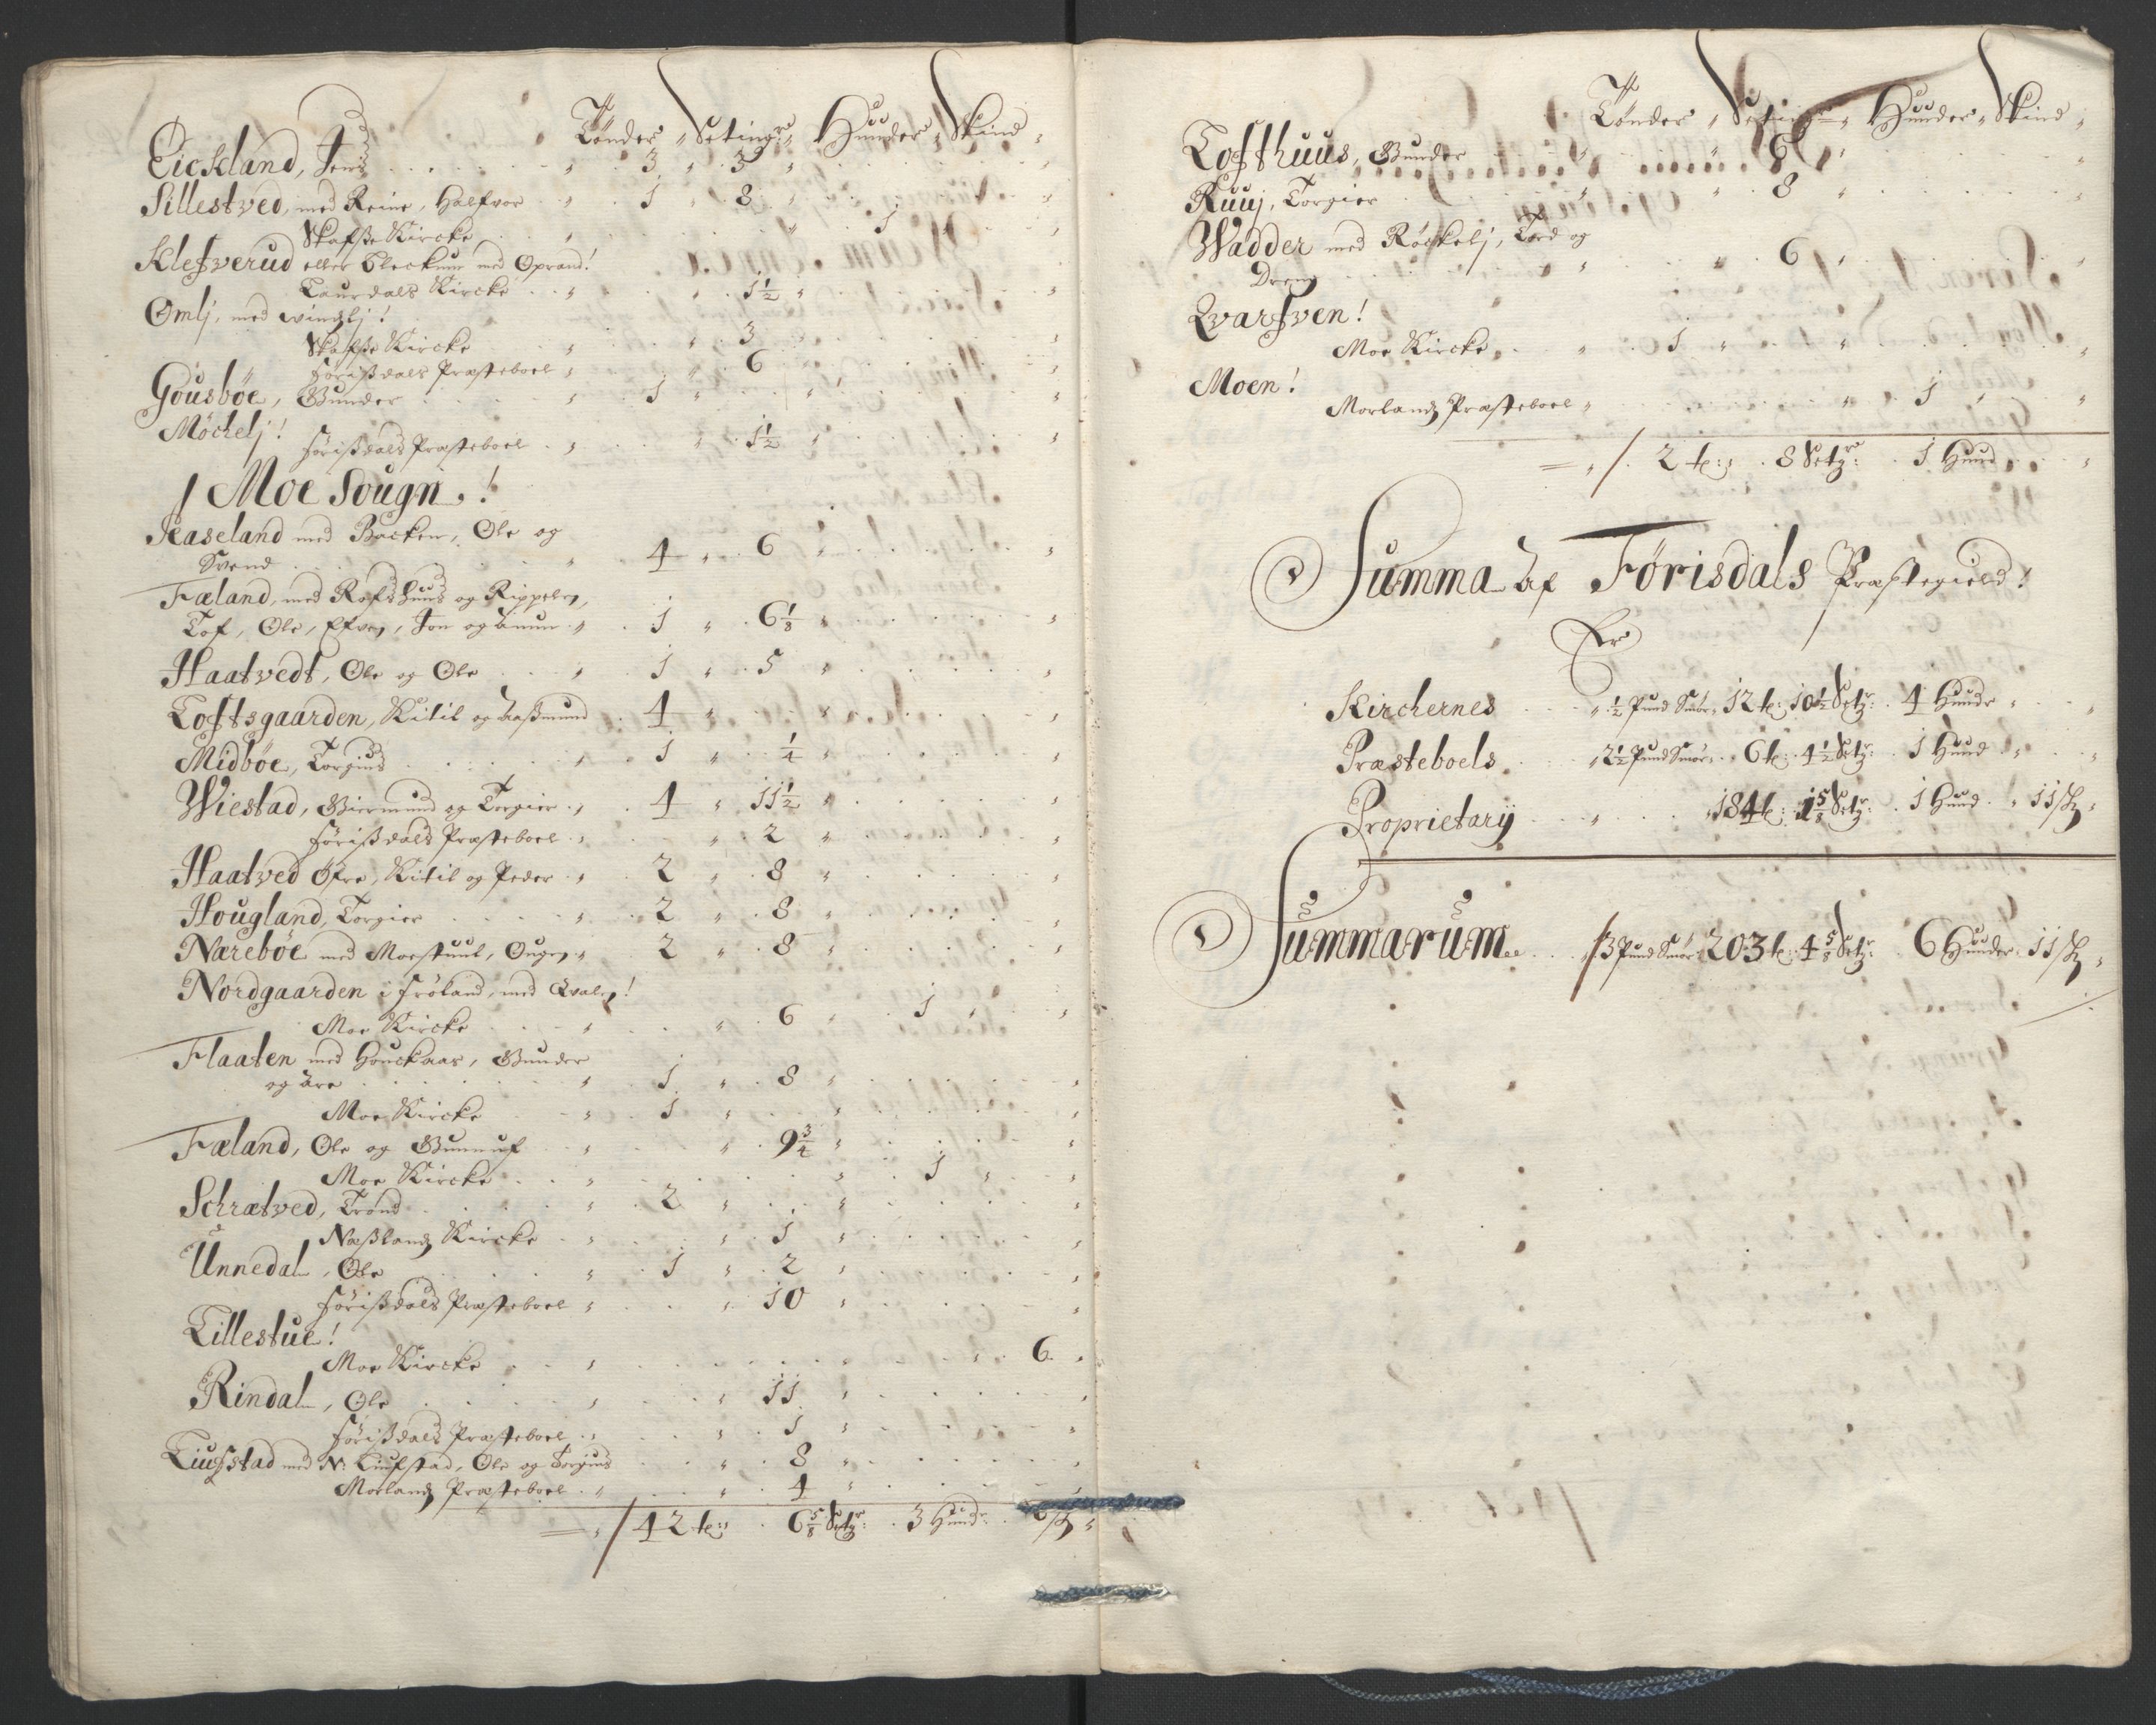 Tønder „ Setingr „ Huuder „ Skind „
Eickland, Jens „ 3 „ 3 „
Sillestved, med Reine, Halfvor „ 1 „ 8 „
Skafße Kircke „ 1 „
Klefverud eller Bleckum med Oprand!
Laurdals Kircke „ „ 1½ „
Omlj, med vinglj!
Skafße Kircke „ „ 3 „
Førißdals Præsteboel „ „ 6 „
Gousbøe, Gunder „ 1 „
Møchelj!
Førißdals Præsteboel „ „ 1½ „
Moe Sougn!
Raseland med Backen, Ole og
Svend „ 4 „ 6 „
Fæland, med Rofshuus og Rippelen,
Tof, Ole, Efven, Jon og Amun „ 1 „ 6⅛ „
Haatvedt, Ole og Ole „ 1 „ 5 „
Toftsgaarden, Kitil og Aaßmund 4 „
Midbøe, Torgius „ 1 „ ¼ „
Wiestad, Giermund og Torgier „ 4 „ 11½ „
Førißdals Præsteboel „ „ 2 „
Haatved Øfre, Kitil og Peder „ 2 „ 8 „
Hougland, Torgier „ 2 „ 8 „
Nærebøe med Moestuul, Ougen „ 2 „ 8 „
Nordgaarden i Frøland, med Qvalen!
Moe Kircke „ „ 6 „ 1 „
Flaaten med Houckaas, Gunder
og Are „ 1 „ 8 „
Moe Kircke „ 1 „
Fæland, Ole og Gunnuf „ „ 9¾ „
Moe Kircke „ „ 1 „
Schrætved, Trond „ 2 „
Næßlandz Kircke „ „ 1 „
Unnedal, Ole „ 1 „ 2 „
Førißdals Præsteboel „ „ 10 „
Tillestue!
Moe Kircke „ „ 6 „
Rindal, Ole „ „ 11 „
Førißdals Præsteboel „ „ 1 „
Liufstad med N: Liufstad, Ole og Torgius „ 8 „
Morlandz Præsteboel „ „ 4 „
42 te: 6⅝ Setgr: 3 Huudr
Tønder „ Setingr „ Huuder „ Skind „
Tofthuus, Gunder „ „ 6 „
Ruuj, Torgier „ „ 8 „
Wadder med Røckelj, Tord og
Dreng „ „ 6 „
Qvarfven!
Moe Kircke „ 1 „
Moen!
Morlandz Præsteboel „ „ 1 „
2 te: 8 Setgr: 1 Huud „
Summa Af Førisdals Præstegield!
Er
Kirchernes „ ½ Pund Smør „ 12 te: 10½ Setgr: 4 Huudr „
Præsteboels „ 2½ Pund Smør „ 6 te: 4½ Setgr: 1 Huud „
Proprietarij „ 184 te: 1⅝ Setgr: 1 Huud „ 11 sk „
Summarum „ 3 Pund Smør 203 te: 4⅝ Setgr 6 Huuder 11 sk „